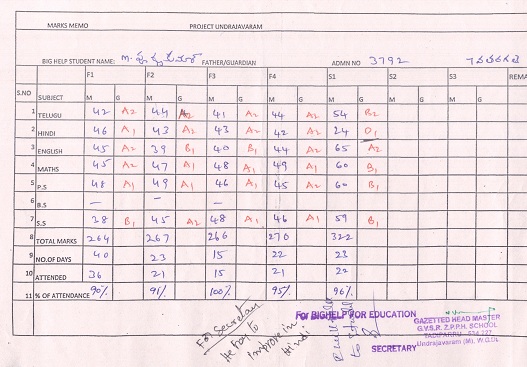 MARKS MEMO PROJECT UNDRAJAVARAM
BIG HELP STUDENT NAME: FATHER/GUARDIAN ADMN NO 3792
F1 F2 F3 F4 S1 S2 S3 REMA
S.NO SUBJECT M G M G M G M G M G M G M G
1 TELUGU 42 A2 44 A2 41 A2 44 A2 54 B2
2 HINDI 46 A1 43 A2 43 A2 42 A2 24 D1
3 ENGLISH 45 A2 39 B1 40 B1 44 A2 65 A2
4 MATHS 45 A2 47 A1 48 A1 49 A1 60 B1
5 P.S 48 A1 49 A1 46 A1 45 A2 60 B1
6 B.S — — —
7 S.S 38 B1 45 A2 48 A1 46 A1 59 B1
8 TOTAL MARKS 264 267 266 270 322
9 NO.OF DAYS 40 23 15 22 23
10 ATTENDED 36 21 15 21 22
11 % OF ATTENDANCE 90% 91% 100% 95% 96%
For Secretary
He has to
Improve in
Hindi
For BIGHELP FOR EDUCATION
SECRETARY
GAZETTED HEAD MASTER
G.V.S.R. Z.P.P.H. SCHOOL
Undrajavaram (M), W.G.Dt.